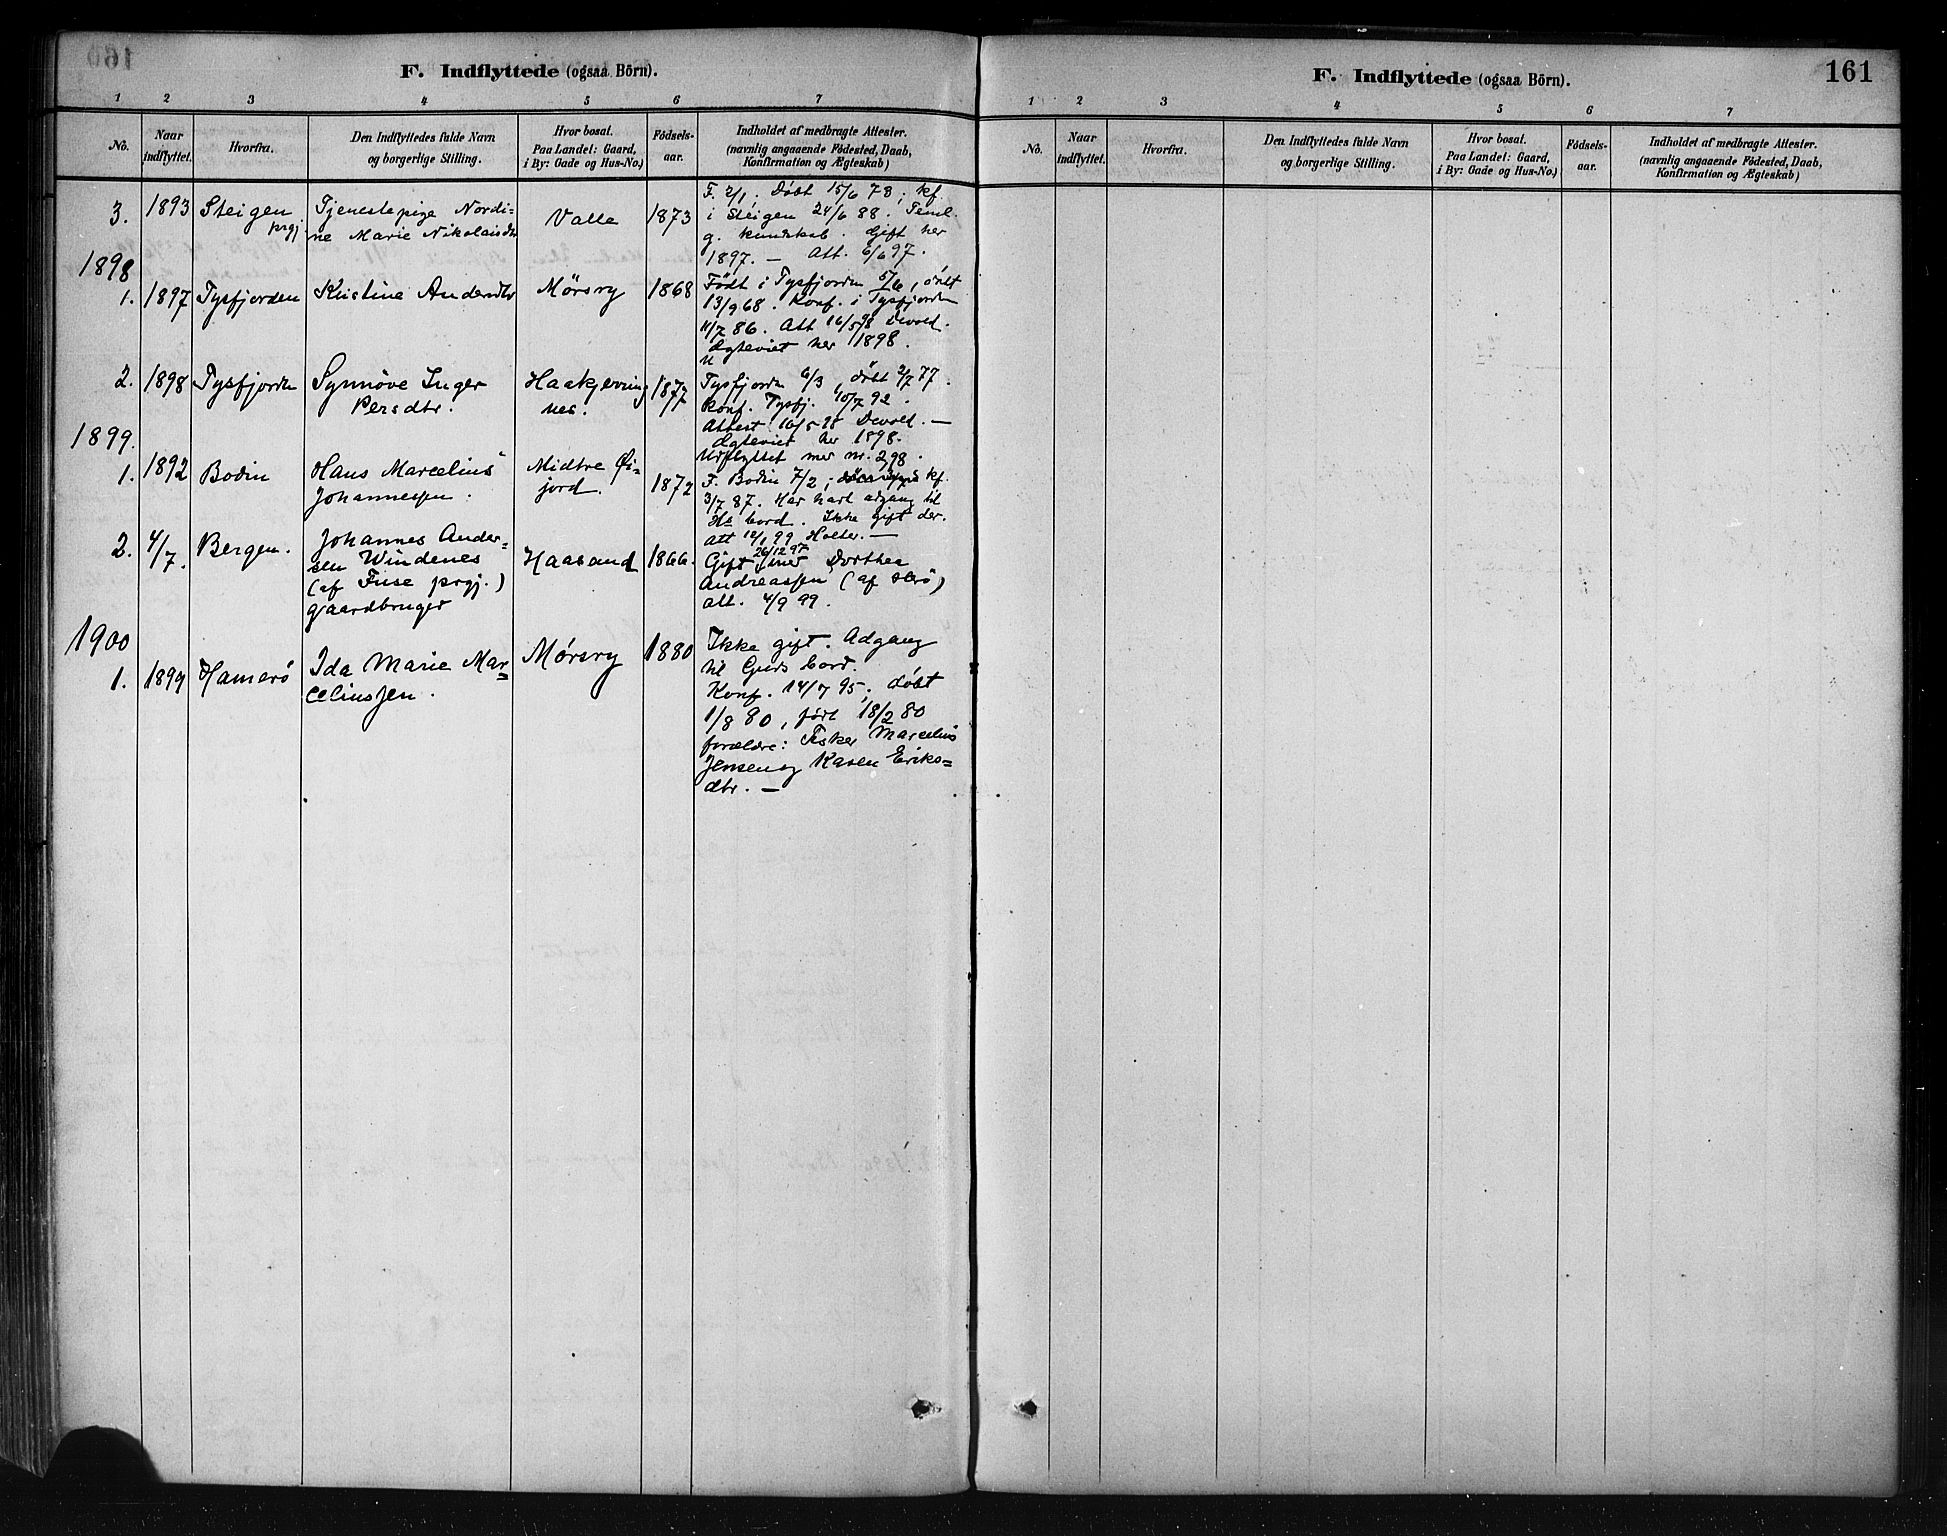 F. Indflyttede (ogsaa Börn).
1 2 3 4 5 6 7
No.
Naar indflyttet.
Hvorfra.
Den Indflyttedes fulde Navn
og borgerlige Stilling.
Hvor bosat.
Paa Landet: Gaard,
i By: Gade og Hus-No.)
Födsels-
aar.
Indholdet af medbragte Attester.
(navnlig angaaende Födested, Daab,
Konfirmation og Ægteskab)
3. 1893 Steigen prgj.
Tjenestepige Nordi-
ne Marie Nikolaisdtr
Valle
1873
F. 2/1. Döbt 15/6 73; kf.
i Steigen 24/6 88. Temel.
g. kundskab. Gift her
1897. — Att. 6/6 97.
1898
1. 1897 Tysfjorden
Kristine Andersdtr
Mørsry
1868
Født i Tysfjorden 5/6, döbt
13/9 68. Konf. i Tysfjorden
11/7 86. Att 16/5 98 Devold.
Ægteviet her 1898.
2. 1898 Tysfjorden
Synnöve Inger
Persdtr.
Haakjerring
nes.
1877
Tysfjorden 6/3, döbt 2/7 77.
Konf. Tysfj. 10/7 92.
Attest 16/5 98 Devold. —
Ægteviet her 1898.
Udflyttet
1899.
1. 1892 Bodin
Hans Marcelius
Johannessen.
Midtre Øi-
jord.
1872
F. Bodin 7/2; kf.
3/7 87. Har havt adgang til
Hs bord. Ikke gift der.
Att 12/1 99 Holter. —
2. 4/7. Bergen.
Johannes Ander-
sen Windenes
(af Fuse prgj.)
gaardbruger
Haasand
1866.
Gift 26/12 97 med Dorthea
Andreassen
att. 4/9 99.
1900
1. 1899 Hamerö
Ida Marie Mar=
celiussen.
Mörsry
1880
Ikke gift. Adgang
til Guds bord.
Konf. 14/7 95; döbt
1/8 80, född 18/2 80
forældre: Fisker Marcelius
Jensen og Karen Eriks=
dtr. —
F. Indflyttede (ogsaa Börn).
161
1 2 3 4 5 6 7
No.
Naar
indflyttet.
Hvorfra.
Den Indflyttedes fulde Navn
og borgerlige Stilling.
Hvor bosat.
Paa Landet: Gaard,
i By: Gade og Hus-No.)
Födsels-
aar.
Indholdet af medbragte Attester.
(navnlig angaaende Födested, Daab,
Konfirmation og Ægteskab)